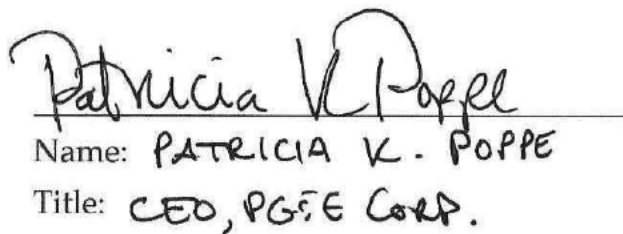 Patricia K Poppe
Name: PATRICIA K. POPPE
Title: CEO, PG&E CORP.